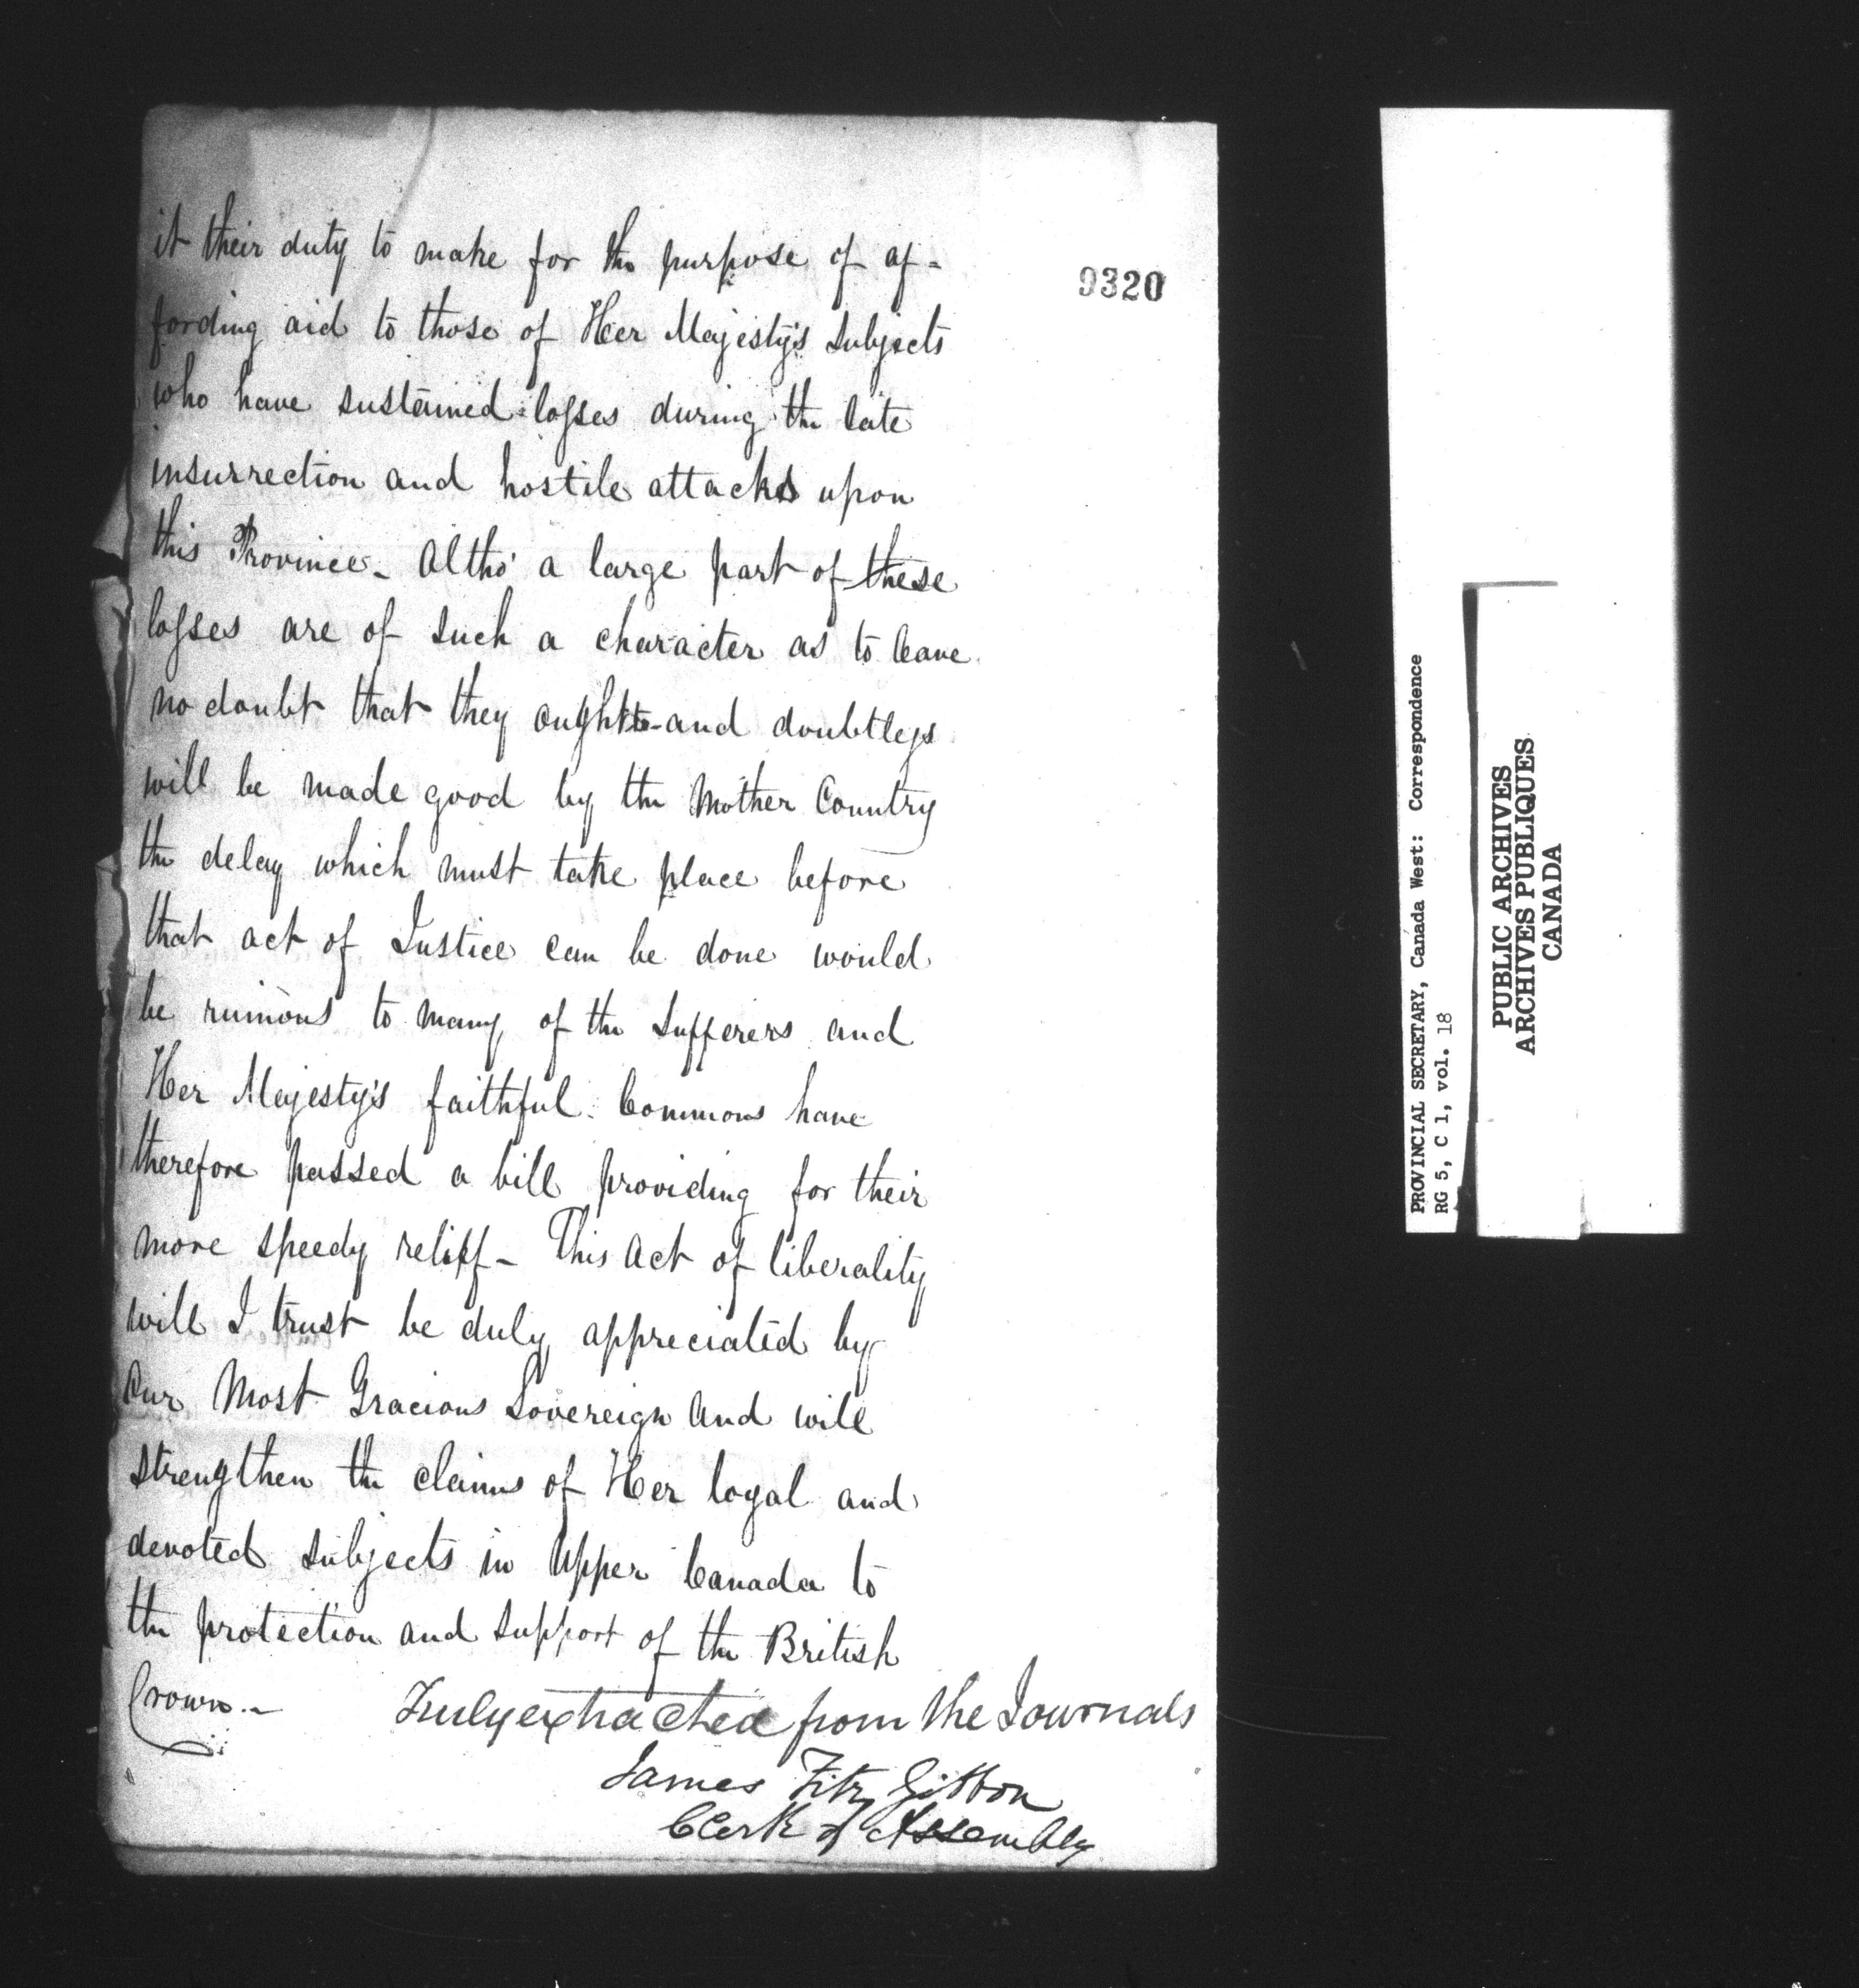 9320
it their duty to make for the purpose of af=
fording aid to those of Her Majesty's Subjects
who have sustained losses during the late
insurrection and hostile attacks upon
this Province_ Altho' a large part of these
losses are of such a character as to leave
no doubt that they ought to and doubtless
will be made good by the Mother Country
the delay which must take place before
that act of Justice can be done would
be ruinous to many of the Sufferers and
Her Majesty's faithful Commons have
therefore passed a bill providing for their
more speedy relief_ This Act of liberality
will I trust be duly appreciated by
Our Most Gracious Sovereign and will
strengthen the claims of Her loyal and
devoted subjects in Upper Canada to
the protection and support of the British
Crown._
Truly extracted from the Journals
James FitzGibbon
Clerk of Assembly
PROVINCIAL SECRETARY, Canada West: Correspondence
RG 5, C 1, vol. 18
PUBLIC ARCHIVES
ARCHIVES PUBLIQUES
CANADA